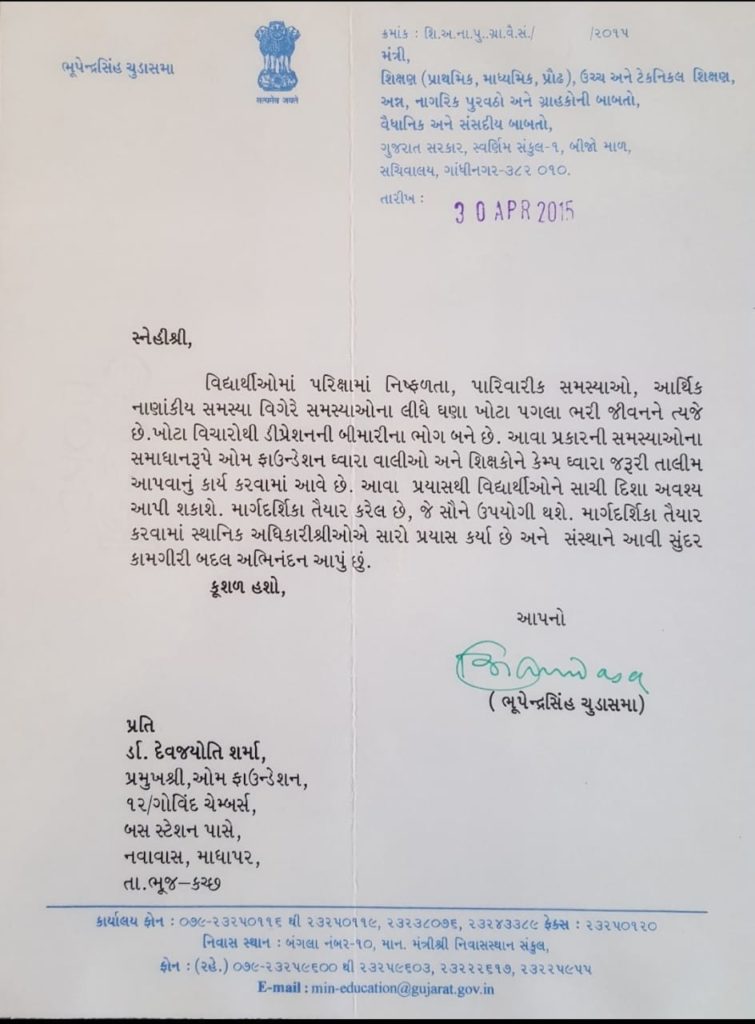 ભૂપેન્દ્રસિંહ ચુડાસમા
सत्यमेव जयते
ક્રમાંક : શિ.અ.ના.પુ..ગ્રા.વૈ.સં./ /૨૦૧૫
મંત્રી,
શિક્ષણ (પ્રાથમિક, માધ્યમિક, પ્રૌઢ), ઉચ્ચ અને ટેકનિકલ શિક્ષણ,
અન્ન, નાગરિક પુરવઠો અને ગ્રાહકોની બાબતો,
વૈધાનિક અને સંસદીય બાબતો,
ગુજરાત સરકાર, સ્વર્ણિમ સંકુલ-૧, બીજો માળ,
સચિવાલય, ગાંધીનગર-૩૮૨ ૦૧૦.
તારીખ : 30 APR 2015
સ્નેહીશ્રી,
વિદ્યાર્થીઓમાં પરિક્ષામાં નિષ્ફળતા, પારિવારીક સમસ્યાઓ, આર્થિક
નાણાંકીય સમસ્યા વિગેરે સમસ્યાઓના લીધે ઘણા ખોટા પગલા ભરી જીવનને ત્યજે
છે.ખોટા વિચારોથી ડીપ્રેશનની બીમારીના ભોગ બને છે. આવા પ્રકારની સમસ્યાઓના
સમાધાનરૂપે ઓમ ફાઉન્ડેશન ઘ્વારા વાલીઓ અને શિક્ષકોને કેમ્પ ઘ્વારા જરૂરી તાલીમ
આપવાનું કાર્ય કરવામાં આવે છે. આવા પ્રયાસથી વિદ્યાર્થીઓને સાચી દિશા અવશ્ય
આપી શકાશે. માર્ગદર્શિકા તૈયાર કરેલ છે, જે સૌને ઉપયોગી થશે. માર્ગદર્શિકા તૈયાર
કરવામાં સ્થાનિક અધિકારીશ્રીઓએ સારો પ્રયાસ કર્યા છે અને સંસ્થાને આવી સુંદર
કામગીરી બદલ અભિનંદન આપું છું.
કૂશળ હશો,
આપનો
( ભૂપેન્દ્રસિંહ ચુડાસમા)
પ્રતિ
ર્ડા. દેવજયોતિ શર્મા,
પ્રમુખશ્રી,ઓમ ફાઉન્ડેશન,
૧૨/ગોવિંદ ચેમ્બર્સ,
બસ સ્ટેશન પાસે,
નવાવાસ, માધાપર,
તા.ભૂજ–કચ્છ
કાર્યાલય ફોન : ૦૭૯-૨૩૨૫૦૧૧૬ થી ૨૩૨૫૦૧૧૯, ૨૩૨૩૮૦૭૬, ૨૩૨૪૩૩૮૯ ફેક્સ : ૨૩૨૫૦૧૨૦
નિવાસ સ્થાન : બંગલા નંબર-૧૦, માન. મંત્રીશ્રી નિવાસસ્થાન સંકુલ,
ફોન : (રહે.) ૦૭૯-૨૩૨૫૯૬૦૦ થી ૨૩૨૫૯૬૦૩, ૨૩૨૨૨૬૧૭, ૨૩૨૨૫૯૫૫
E-mail : min-education@gujarat.gov.in